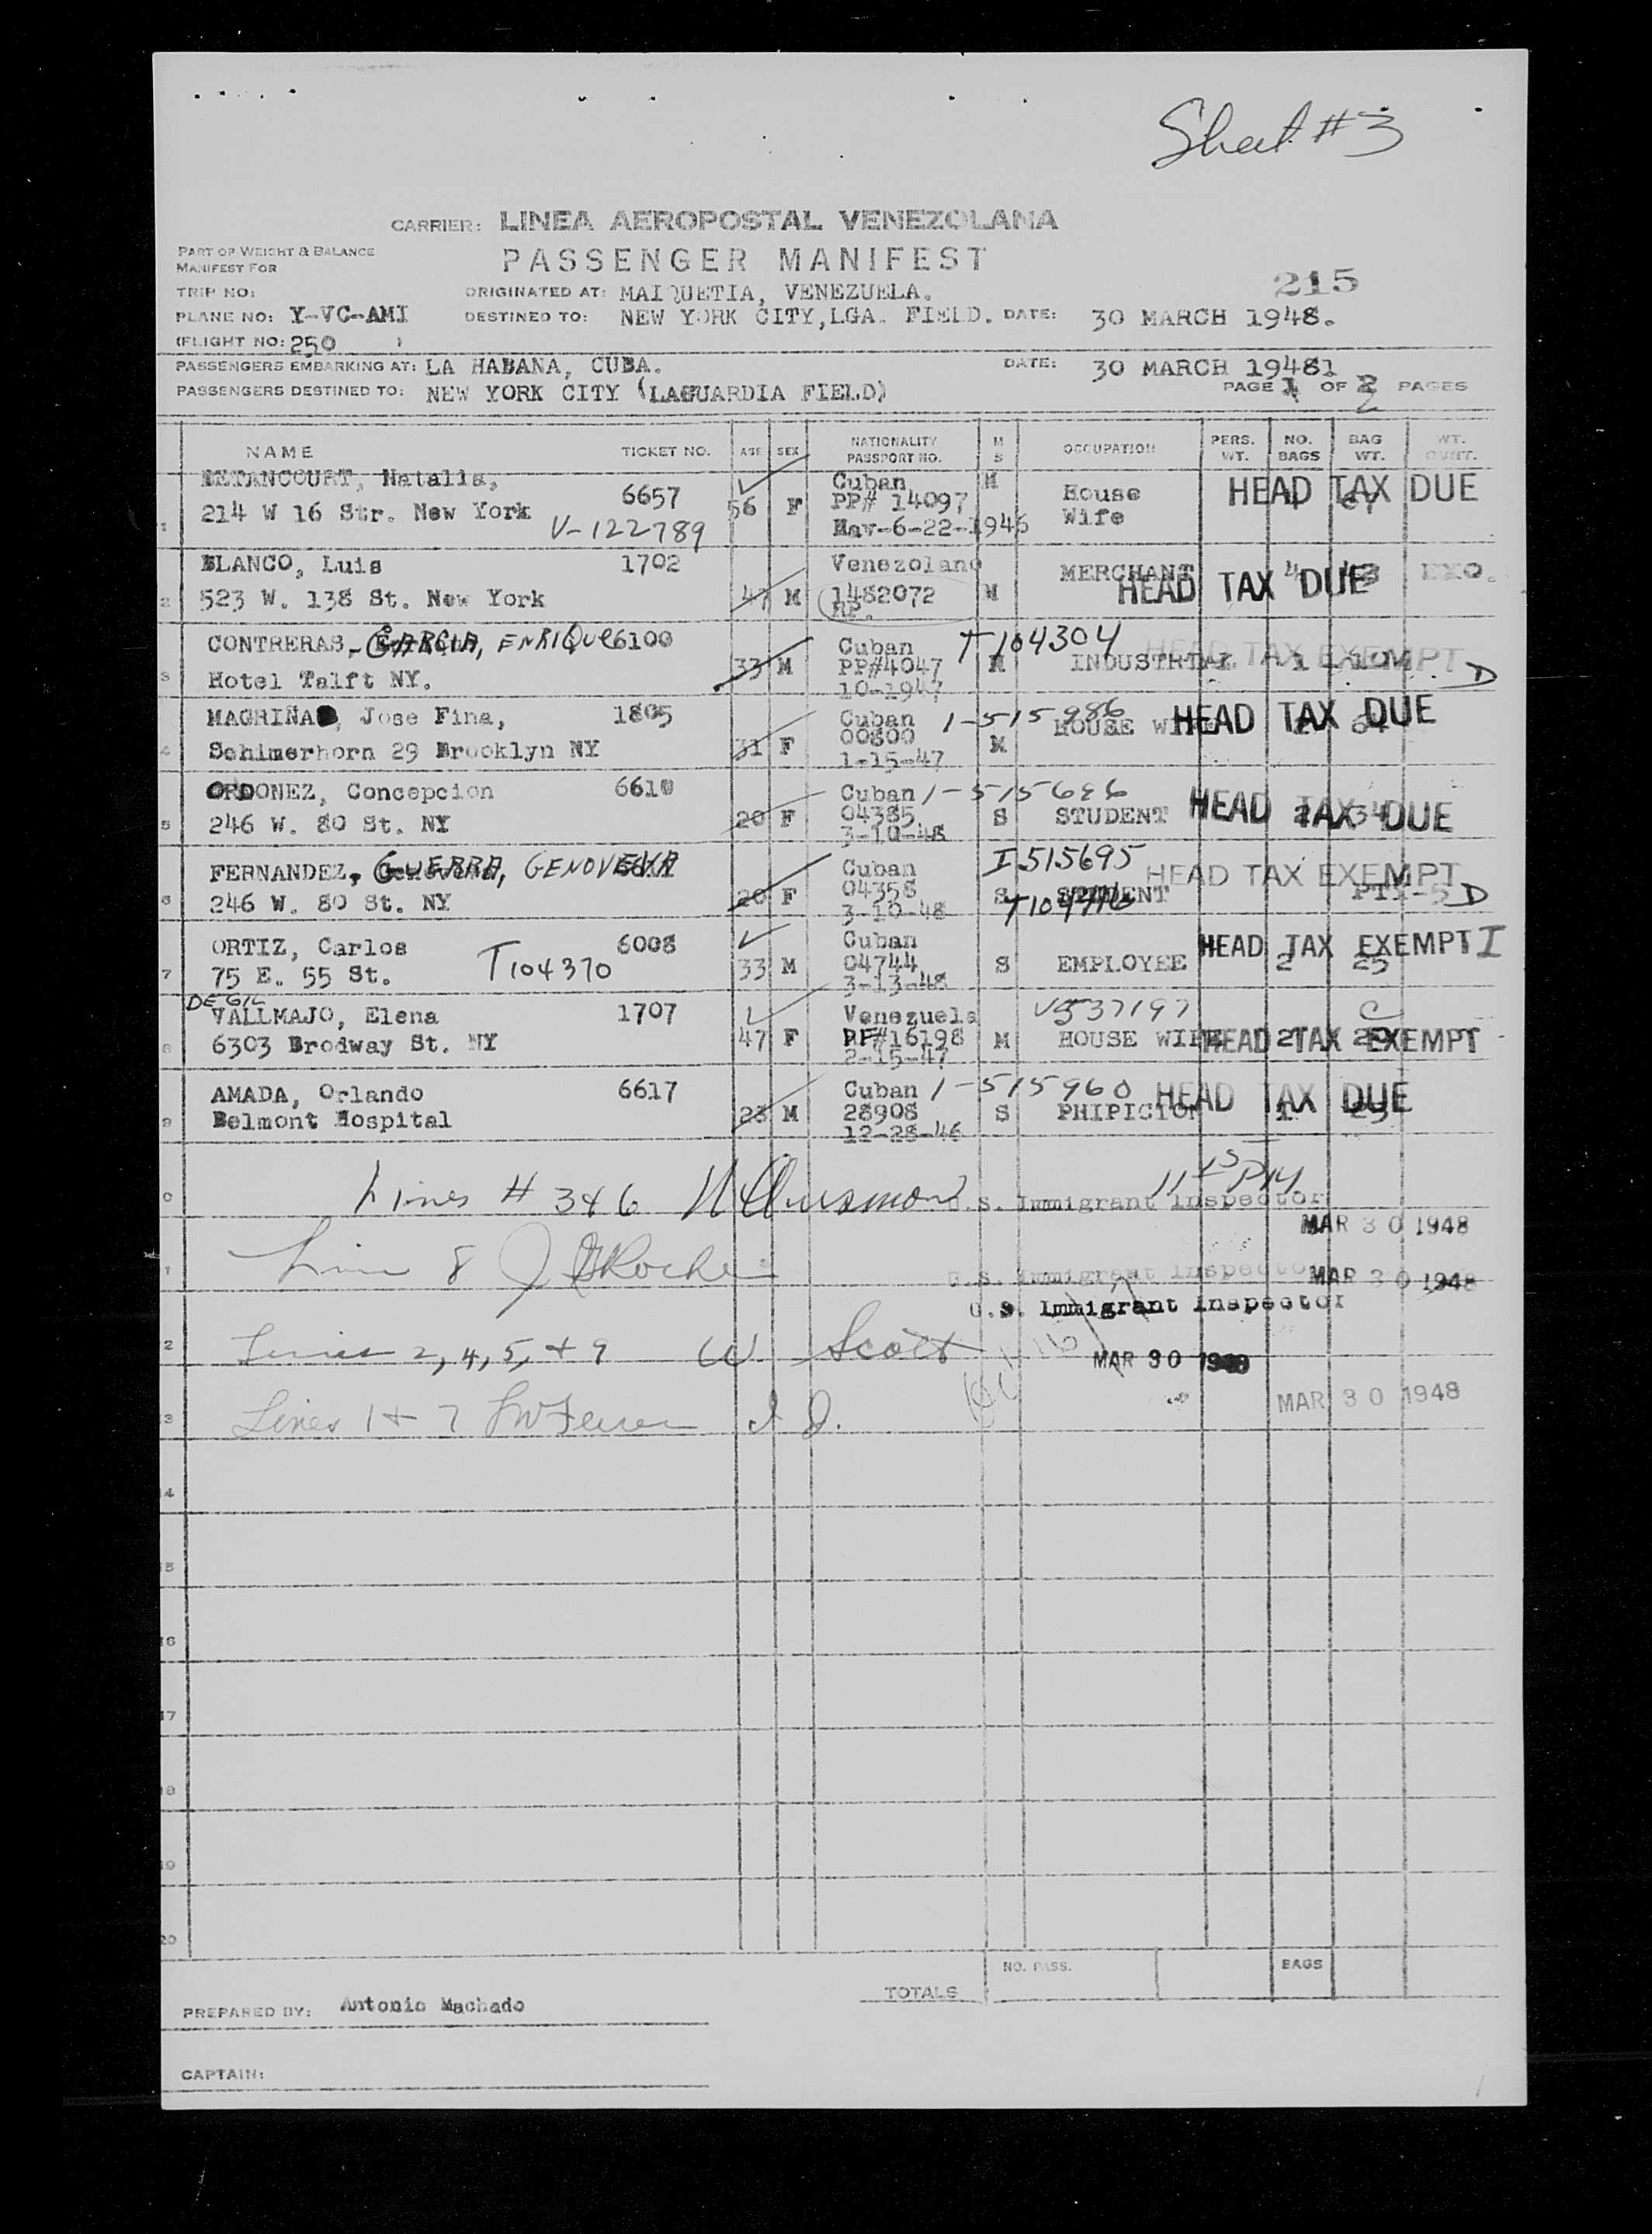 Sheet #3
CARRIER: LINEA AEROPOSTAL VENEZOLANA
PART OF WEIGHT & BALANCE
MANIFEST FOR
PASSENGER MANIFEST
215
TRIP NO:
ORIGINATED AT: MAIQUETIA, VENEZUELA.
PLANE NO: Y-VC-AMI DESTINED TO: NEW YORK CITY,LGA. FIELD. DATE: 30 MARCH 1948.
(FLIGHT NO: 250 )
PASSENGERS EMBARKING AT: LA HABANA, CUBA. DATE: 30 MARCH 1948
PASSENGERS DESTINED TO: NEW YORK CITY (LAGUARDIA FIELD) PAGE 1 OF 2 PAGES
NAME TICKET NO. AGE SEX NATIONALITY PASSPORT NO. M S OCCUPATION PERS. WT. NO. BAGS BAG WT. WT. OVWT.
BETANCOURT, Natalia, Cuban M
6657 56 F PP# 14097 House HEAD TAX DUE
1 214 W 16 Str. New York V-122789 Nav-6-22-1946 Wife
BLANCO, Luis 1702 Venezolano MERCHANT 4 EXO.
2 523 W. 138 St. New York 47 M 1482072 M HEAD TAX DUE
RP.
CONTRERAS, GARCIA, ENRIQUE 6100 Cuban T 104304
33 M PP#4047 M INDUSTRIAL 1 HEAD TAX EXEMPT
3 Hotel Talft NY. 10-1947 D
MAGRIÑA, Jose Fina, 1805 Cuban 1-515986 HOUSE WIFE HEAD TAX DUE
4 Schimerhorn 29 Brooklyn NY 31 F 00800 M
1-15-47
ORDONEZ, Concepcion 6610 Cuban 1-515686
5 246 W. 80 St. NY 20 F 04385 S STUDENT HEAD TAX DUE
3-10-48
FERNANDEZ, GUERRA, GENOVEVA Cuban I 515695 HEAD TAX EXEMPT
6 246 W. 80 St. NY 20 F 04358 S STUDENT D
3-10-48
ORTIZ, Carlos 6008 Cuban HEAD TAX EXEMPT I
7 75 E. 55 St. T104370 33 M 04744 S EMPLOYEE 2 25
3-13-48
DE GIL
VALLMAJO, Elena 1707 Venezuela V537197 C
8 6303 Brodway St. NY 47 F PP#16198 M HOUSE WIFE HEAD TAX EXEMPT
2-15-47
AMADA, Orlando 6617 Cuban 1-515960 HEAD TAX DUE
9 Belmont Hospital 28 M 28908 S PHIPICION 1
12-28-46
11 15 PM
Lines # 3 & 6 U.S. Immigrant Inspector
MAR 30 1948
Line 8 J Roche U.S. Immigrant Inspector MAR 30 1948
U.S. Immigrant Inspector
Lines 2, 4, 5, + 9 W Scott MAR 30 1948
Lines 1 + 7 MAR 30 1948
14
15
16
17
18
19
20
NO. PASS. BAGS
TOTALS
PREPARED BY: Antonio Machado
CAPTAIN: